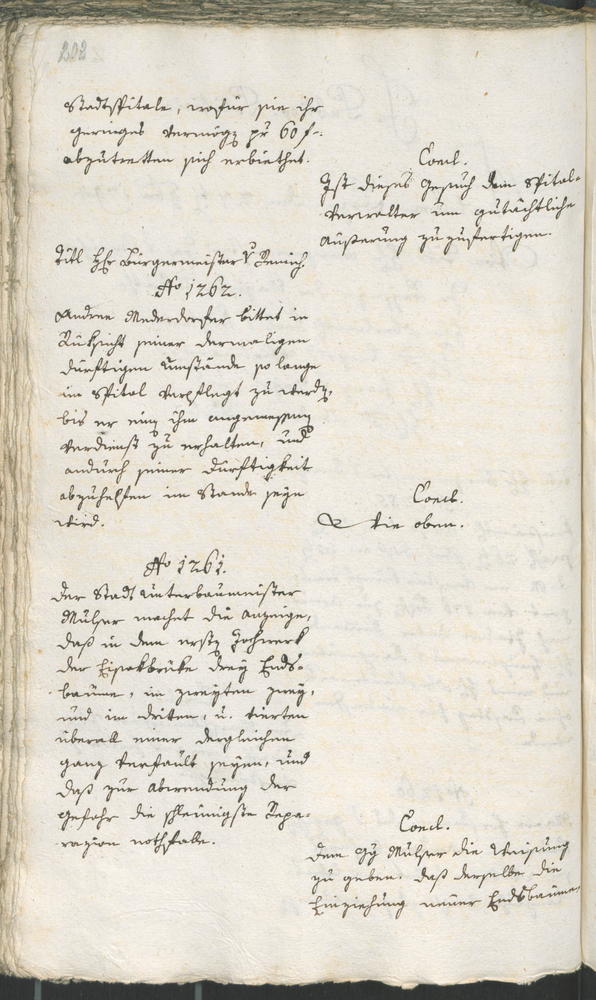 202
Stadtspitale, wofür sie ihr
geringes Vermög pr 60 f.
abzutretten sich erbiethet.
Concl.
Ist dieses Gesuch dem Spital-
verwalter um gutächtliche
Äußerung zuzufertigen.
Titl Hr Bürgermeister v
No 1262.
Andree Mederdorfer bittet in
Rüksicht seiner dermaligen
dürftigen Umstände so lange
im Spital verpflegt zu werdn,
bis er einen ihm angemessenen
Verdienst zu erhalten, und
andurch seiner Dürftigkeit
abzuhelfen im Stande seyn
wird.
Concl.
Wie oben.
No 1261.
Der Stadt Unterbaumeister
Mulser machet die Anzeige,
daß in dem erstn Jochwerk
der Eisakbrüke drey Ends-
bäume, im zweyten zwey,
und im driten, u. vierten
überall einer dergleichen
ganz verfault seyen, und
daß zur Abwendung der
Gefahr die schleunigste Repa-
razion nothfalle.
Concl.
Dem Mulser die Weisung
zu geben. daß derselbe die
Einziehung neuer Endsbäume